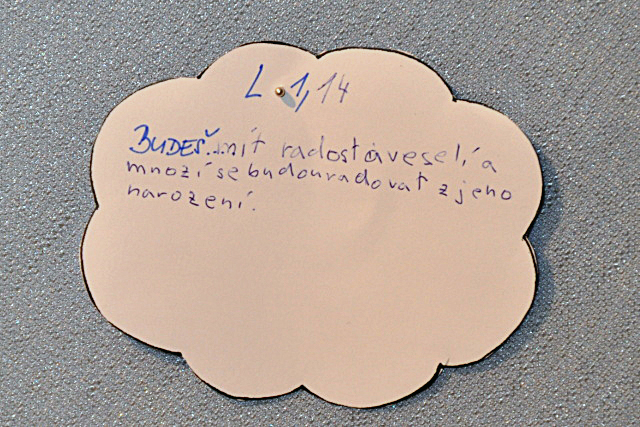 L 1,14
BUDEŠ mít radost a veselí a
mnozí se budou radovat z jeho
narození.